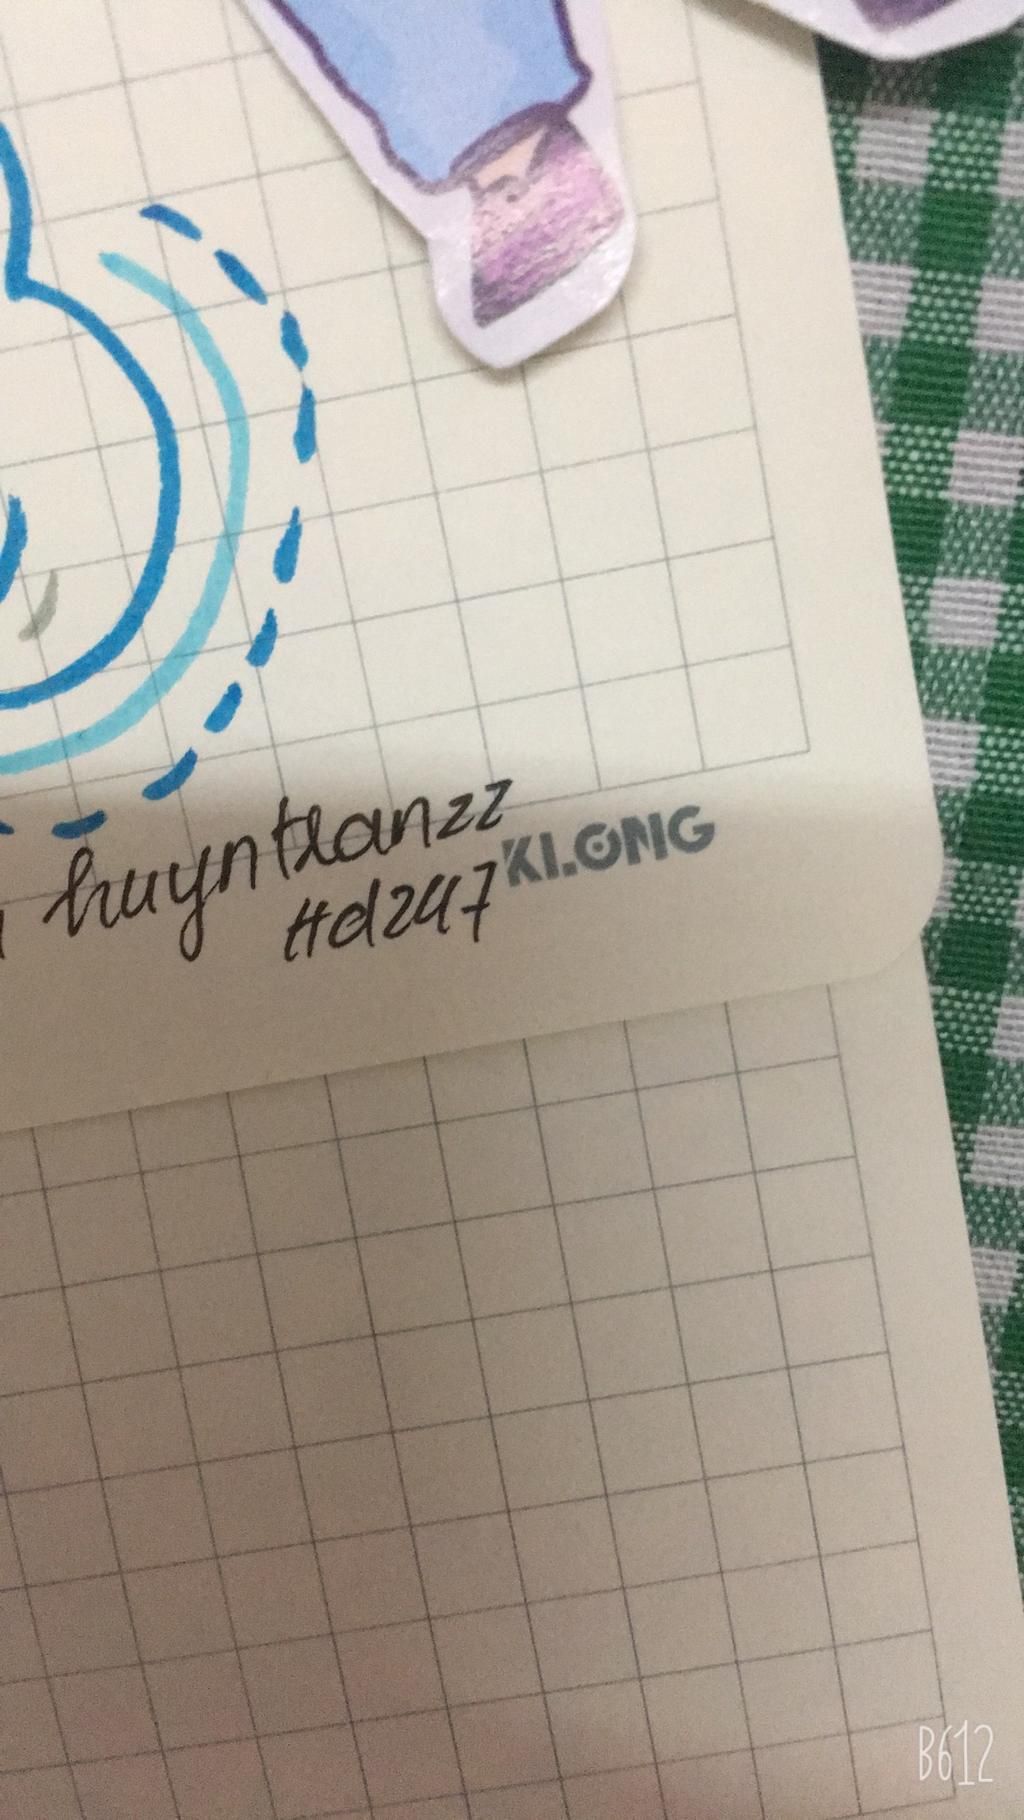 huyntlanzz
KLONG
Hd247
B612